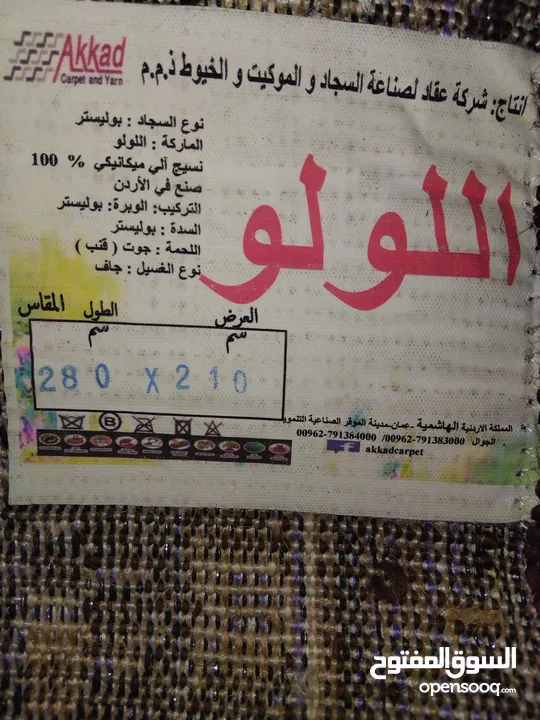 Akkad
Carpet and Yarn
انتاج: شركة عقاد لصناعة السجاد و الموكيت و الخيوط ذ.م.م
نوع السجاد : بوليستر
الماركة : اللولو
نسيج آلي ميكانيكي % 100
صنع في الأردن
التركيب: الوبرة: بوليستر
السدة : بوليستر
اللحمة : جوت ( قنب )
نوع الغسيل : جاف
اللولو
العرض الطول المقاس
سم سم
280 X 210
B
المملكة الاردنية الهاشمية - عمان-مدينة الموقر الصناعية التنموية
الجوال 00962-791383000 / 00962-791384000
f akkadcarpet
السوق المفتوح
opensooq.com